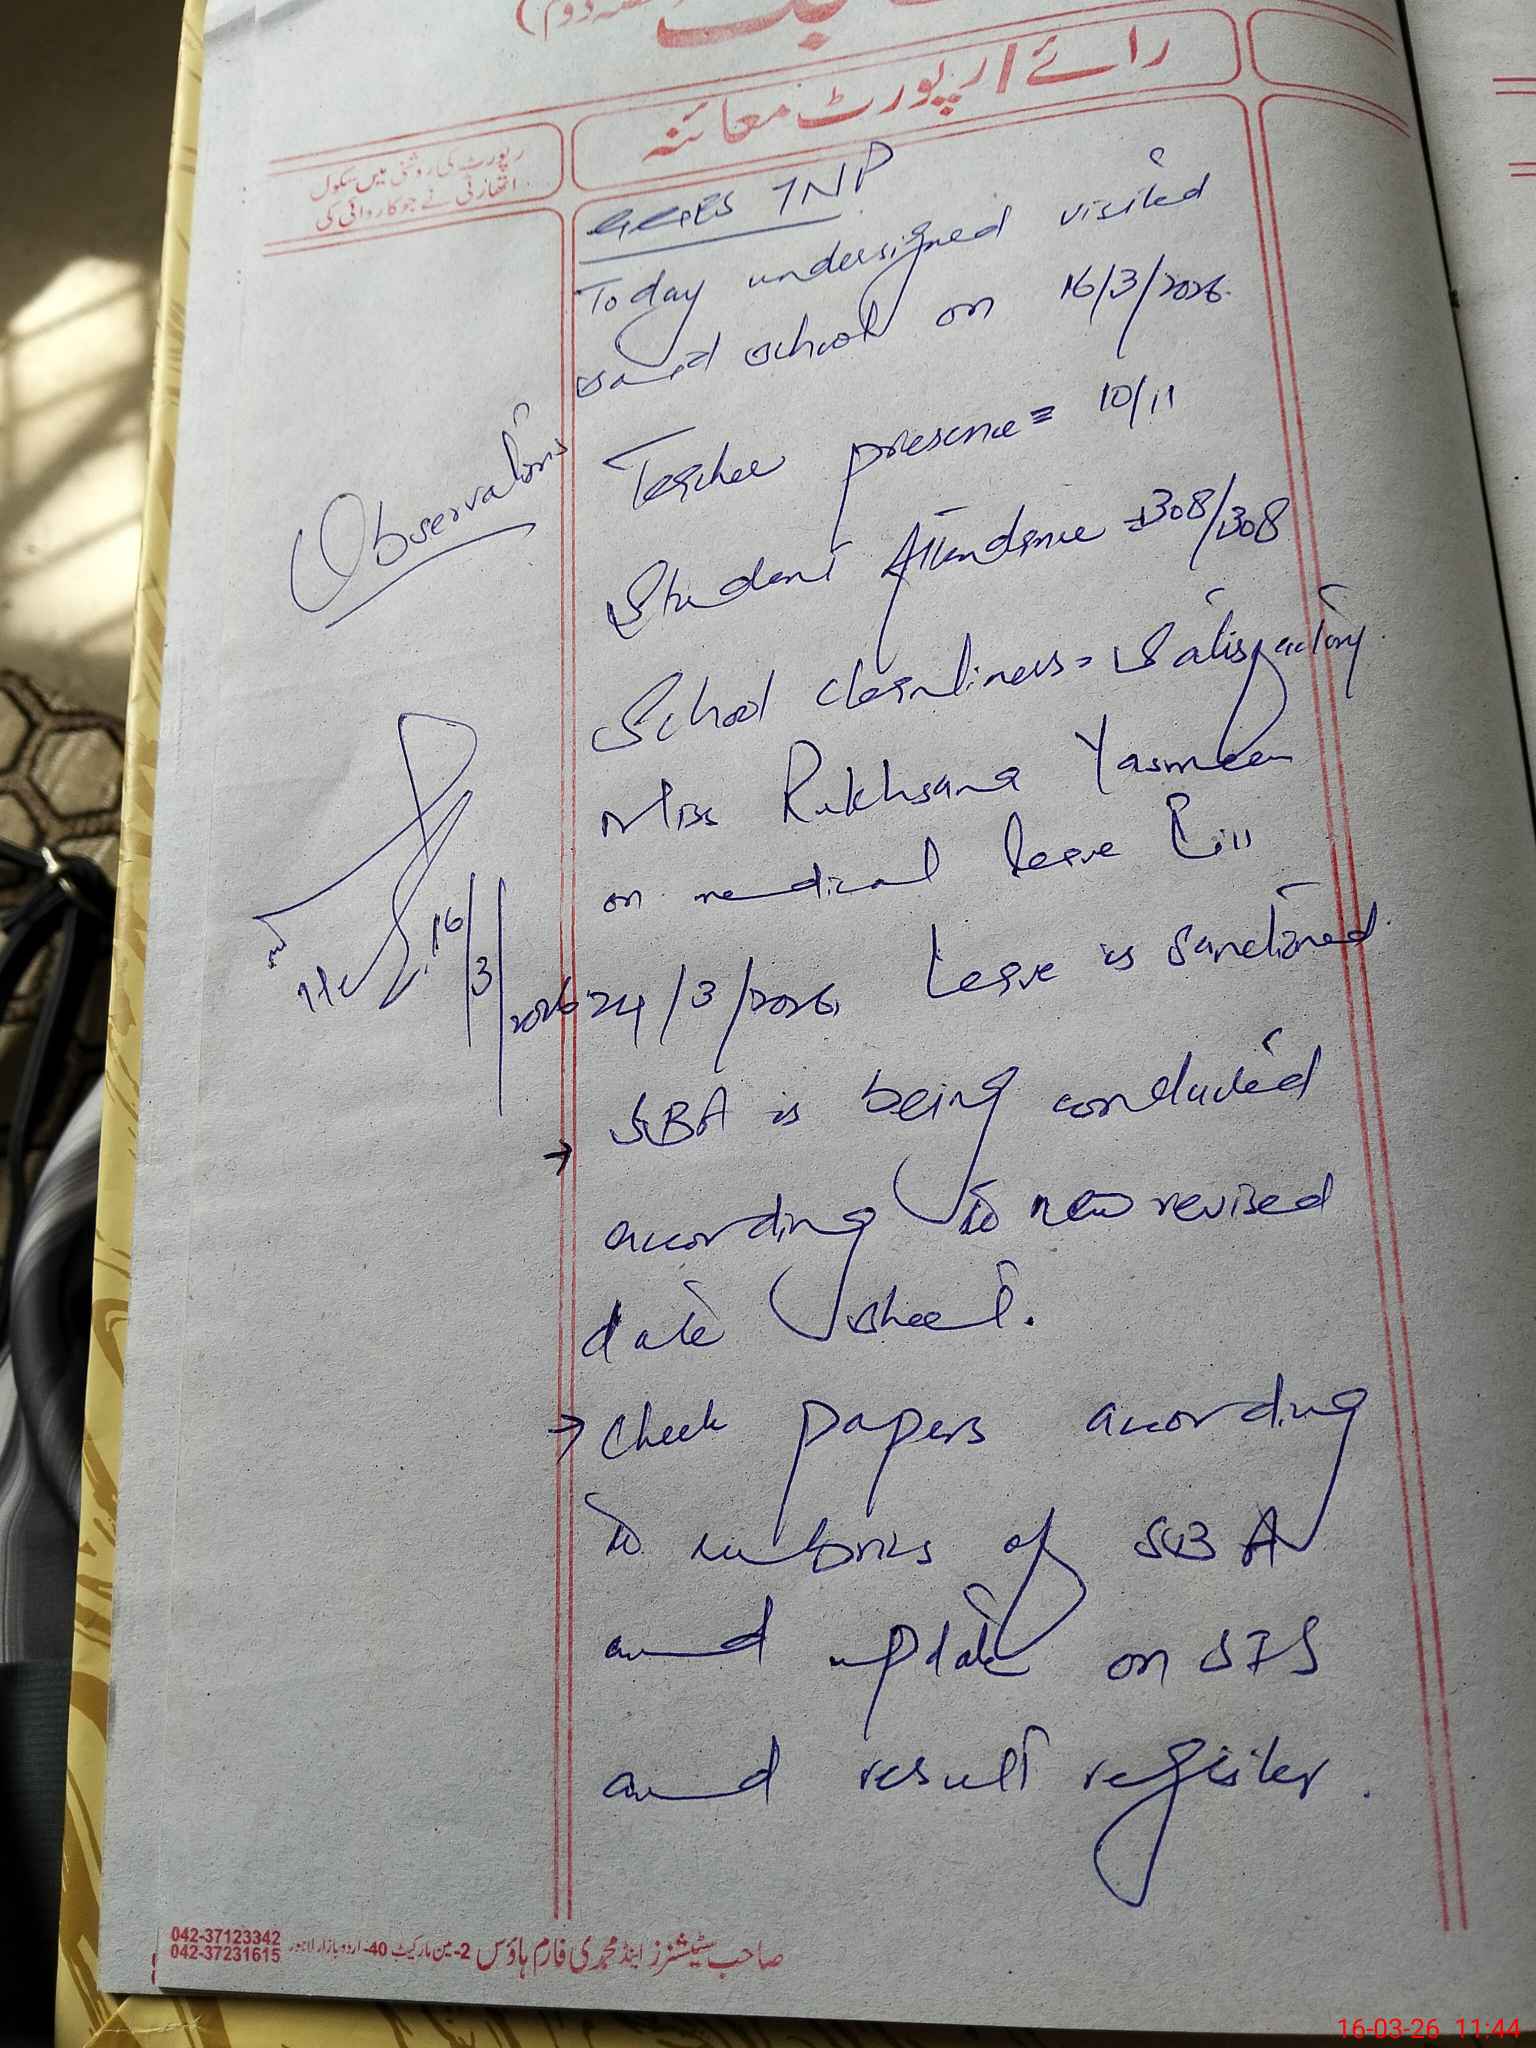 رائے / رپورٹ معائنہ
رپورٹ کی روشنی میں سکول
اتھارٹی نے جو کارروائی کی
GGES TNP
Today undersigned visited
said school on 16/3/2026.
Observations
Teacher presence = 10/11
Student Attendance = 308/308
School cleanliness = Satisfactory.
Miss Rukhsana Yasmeen
on medical leave till
24/3/2026. Leave is Sanctioned.
16/3/2026
→ SBA is being conducted
according to new revised
date sheet.
→ Check papers according
to rubrics of SBA
and update on SIS
and result register.
042-37123342
042-37231615
صاحب سٹیشنرز اینڈ محمدی فارم ہاؤس 2-مین مارکیٹ 40-اردو بازار لاہور
16-03-26 11:44